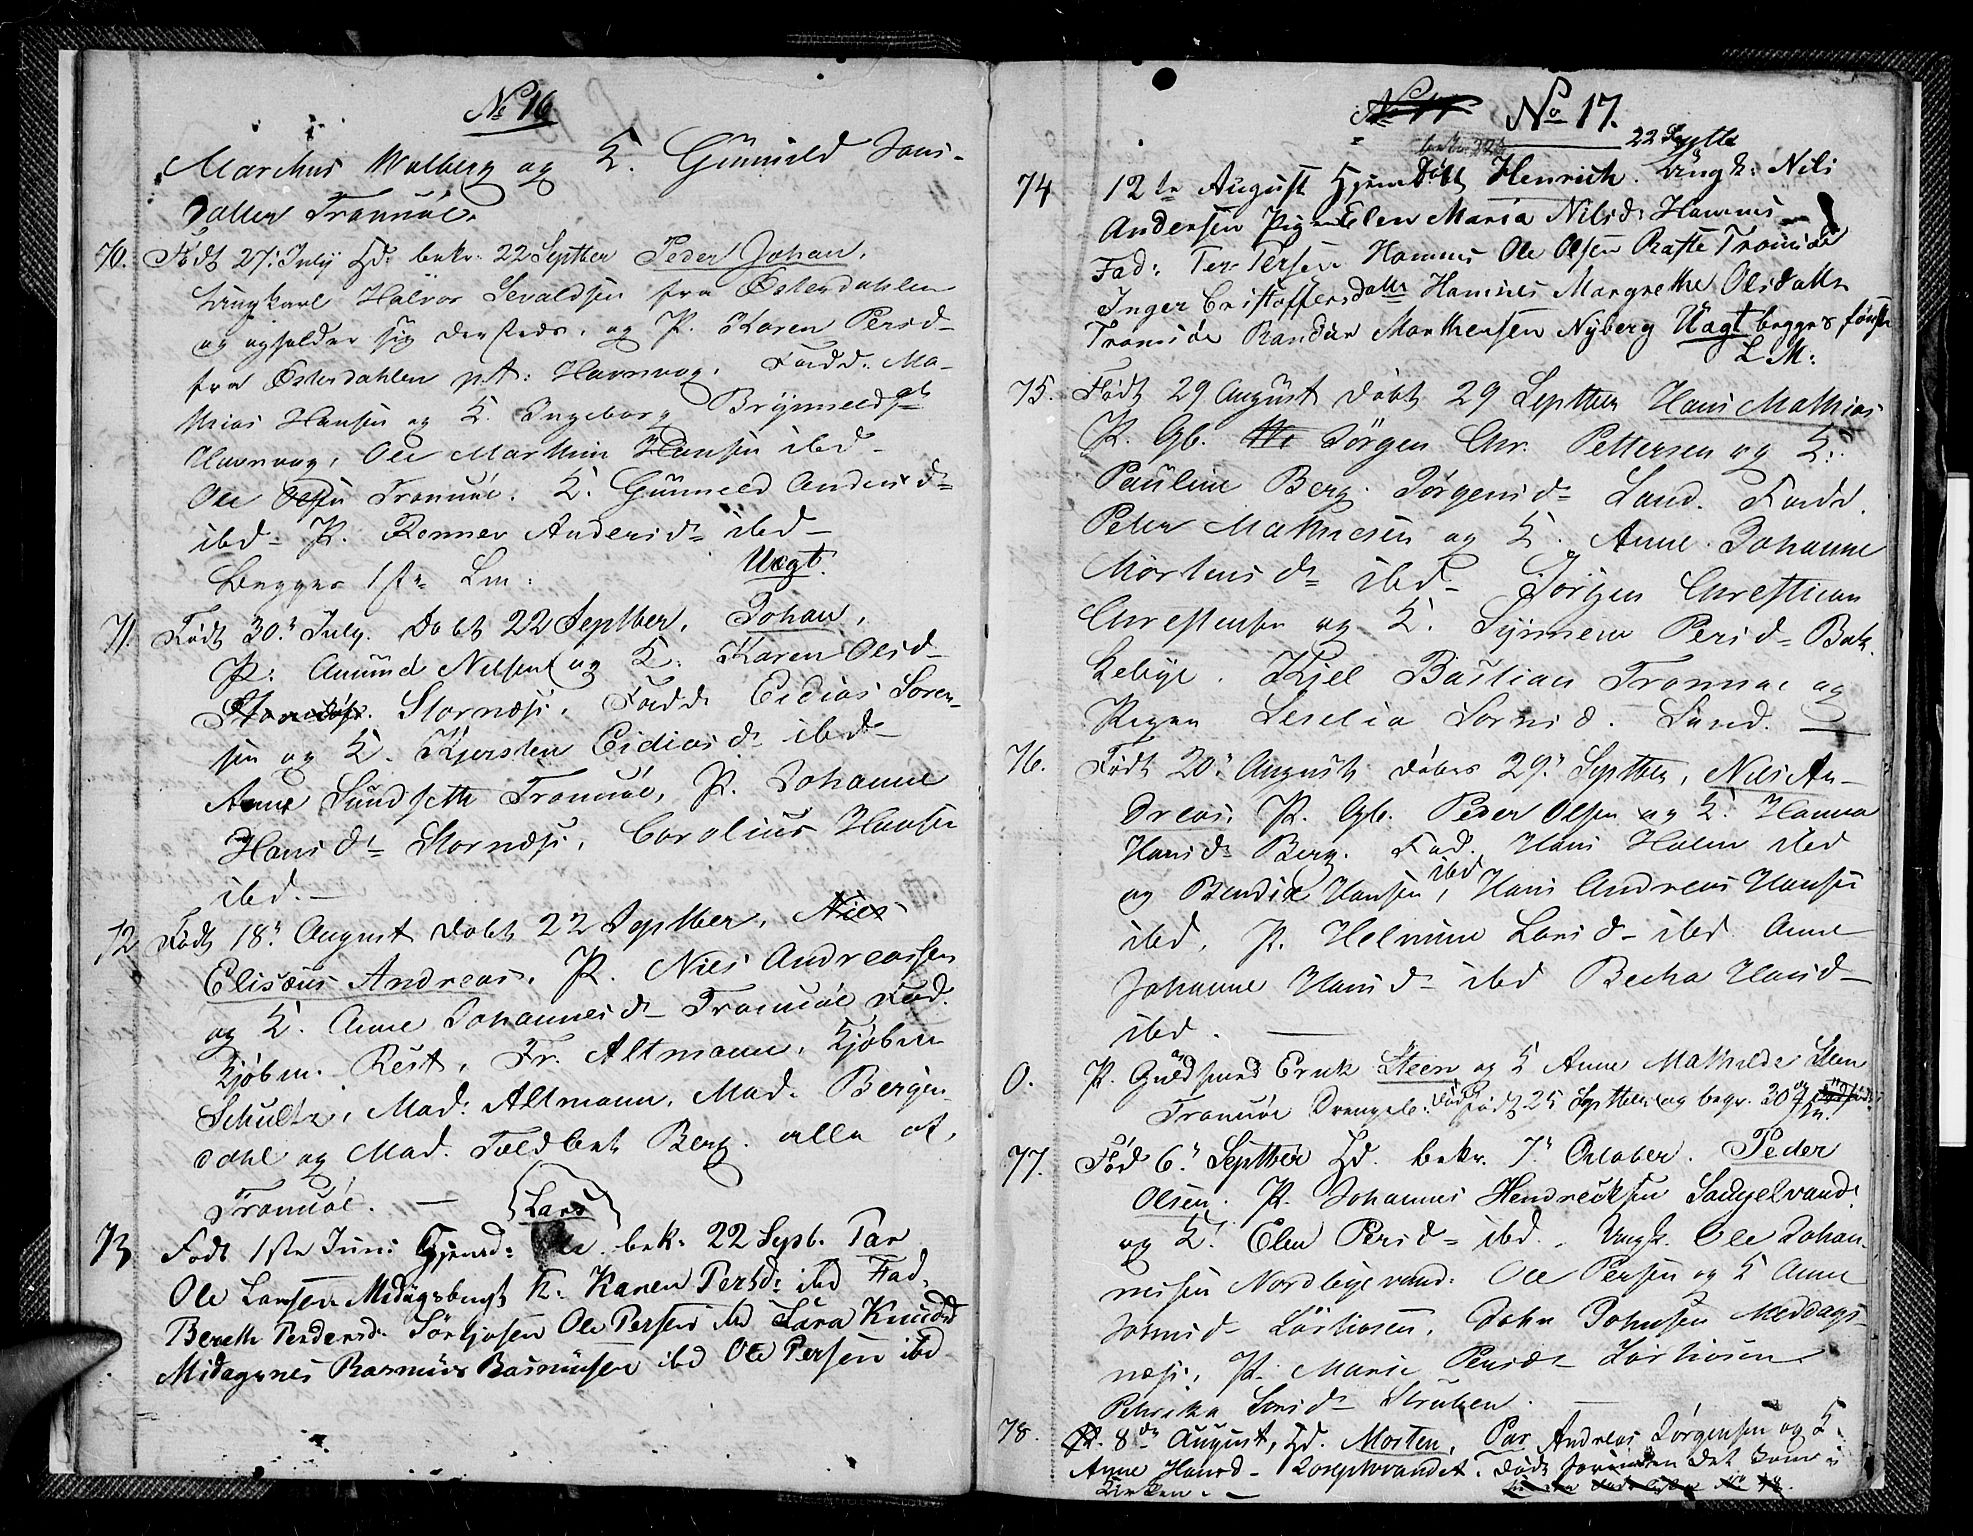 No 16
Marchus Walberg og K. Gunnild Jons-
datter Tromsöe.
70. Födt 27: July Hd. bekr. 22 Septber Peder Johan,
Ungkarl Halvor Sevaldsen fra Österdahlen
og opholder sig dersteds. og P. Karen Persd-
fra Österdahlen p.t: Havnvog. Fadd. Ma-
thias Hansen og K. Ingeborg Brynnelds
Havnvog, Ole Marthin Hansen ibd-
Ole Olsen Tromsöe. K. Gunneld Andersd-
ibd- P. Rennev Andersd- ibd-
Begges 1ste Lm: Uægt.
71. Födt 30: July. Dobt 22 Septber, Johan,
P: Amund Nilsen og K: Karen Olsd-
Stornæss. Fadd. Eidias Soren-
sen og K. Kjersten Eidiasd- ibd-
Anne Sundseth Tromsöe, P. Johanne
Hansd- Stornæss, Carolius Hansen
ibd.-
72 Födt 18: August Dobt 22 Septber, Niels
Elisæus Andreas, P. Niels Andreassen
og K. Anne Johannesd- Tromsöe Fad.
Kjöbm. Rest, Fr. Altmann, Kjöbm
Schultz, Mad: Altmann, Mad. Bergen
dahl og Mad. Toldbet Berg. alle af
Tromsöe. -
Lars
73 Födt 1ste Juni Hjemd: bek: 22 Sept. Par
Ole Larsen Midagsbugt K. Karen Persd: ibd Fad.
Bereth Pedersd. Sörkjosen Ole Persen ibd Sara Knudsd
Midagsnes Rasmus Rasmusen ibd Ole Persen ibd
No 17.
22 Septbr
74 12te August Hjemdöbt Henrich. Ungk: Nils
Andersen Pigen Elen Maria Nilsd: Hamnes
Fad: Per Persen Hamnes Ole Olsen Rafte Tromsöe
Inger Cristoffersdatter Hamnes Margrethe Olsdatter
Tromsöe Randar Morthensen Nyberg Uægt begges förste
L M:
75. Födt 29 August Döbt 29 Septber Hans Mathias
P. Gb. Jörgen Chr. Pettersen og K.
Pauline Berg. Jörgensd- Sand. Fadd.
Peter Mathiesen og K. Anne Johanne
Mortensd- ibd- Jörgen Chrestian
Chrestensen og K. Synneve Persd- Bak
kebye. Kjel Bastian Tromsöe og
Pigen Leselia Sorensd. Sand.
76. Födt 20: August döbes 29: Septber, Niels An-
dreas, P. Gb. Peder Olsen og K. Hanna
Hansd- Berg. Fad. Hans Holm ibd
og Bendix Hansen ibd, Hans Andreas Hansen
ibd, P. Helmine Larsd- ibd Anne
Johanne Hansd- ibd Becka Hansd-
ibd.
0. P. Guldsmed Erick Steen og K Anne Mathilde Steen
Tromsöe Drengeb: Död Födt 25 Septber og begr. 30
77. Föd 6: Septber Hd. bekr. 7: October. Peder
Olsen. P. Johannes Hendricksen Sangelvand
og K. Elen Persd- ibd. Ungk. Ole Johan-
nesen Nordbyevand: Ole Persen og K Anne
Johnsd- Sörkiosen, John Johnsen Meddags-
næss, P. Marie Persd- Sörkiosen
Petrika Larsd- Struken.
78. 8de August, Hd. Morten, Par Andreas Jörgensen og K.
Anne Hansd- Rosepkovandet. Döde forinden det kom i
Kirken. -